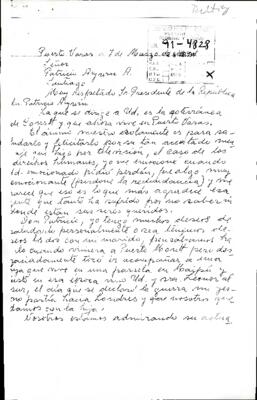 Puerto Varas a 7 de Marzo de
91-4828
Señor
Patricio Aylwin A.
Santiago
Muy Respetado Sr. Presidente de la República
Dn Patricio Aylwin
La que se dirige a Ud. es de
de y que ahora vive en Puerto Varas.
El ánimo nuestro solamente es para sa-
ludarlo y felicitarlo por su tan acertado men-
saje que hizo por televisión, el caso de los
derechos humanos, yo me emocioné cuando
Ud. emocionado pidió perdón, fue algo muy
emocionante (perdone la redundancia) y me
parece que eso es lo que más agradece esa
gente que tanto ha sufrido por no saber
donde están sus seres queridos.
Don Patricio, yo tengo muchos deseos de
saludarlo personalmente o sea tenemos de-
seos los dos con mi marido, pensábamos ha-
cerlo cuando viniera a Puerto Montt pero des-
graciadamente tuve que acompañar a una
hija que vive en una parcela en Maipú y
justo en esa época vino Ud. y Sra. Leonor al
sur, el día que se declaró la guerra mi yer-
no partía hacia Londres y que nosotros que-
damos con la hija.
Nosotros estamos admirando su